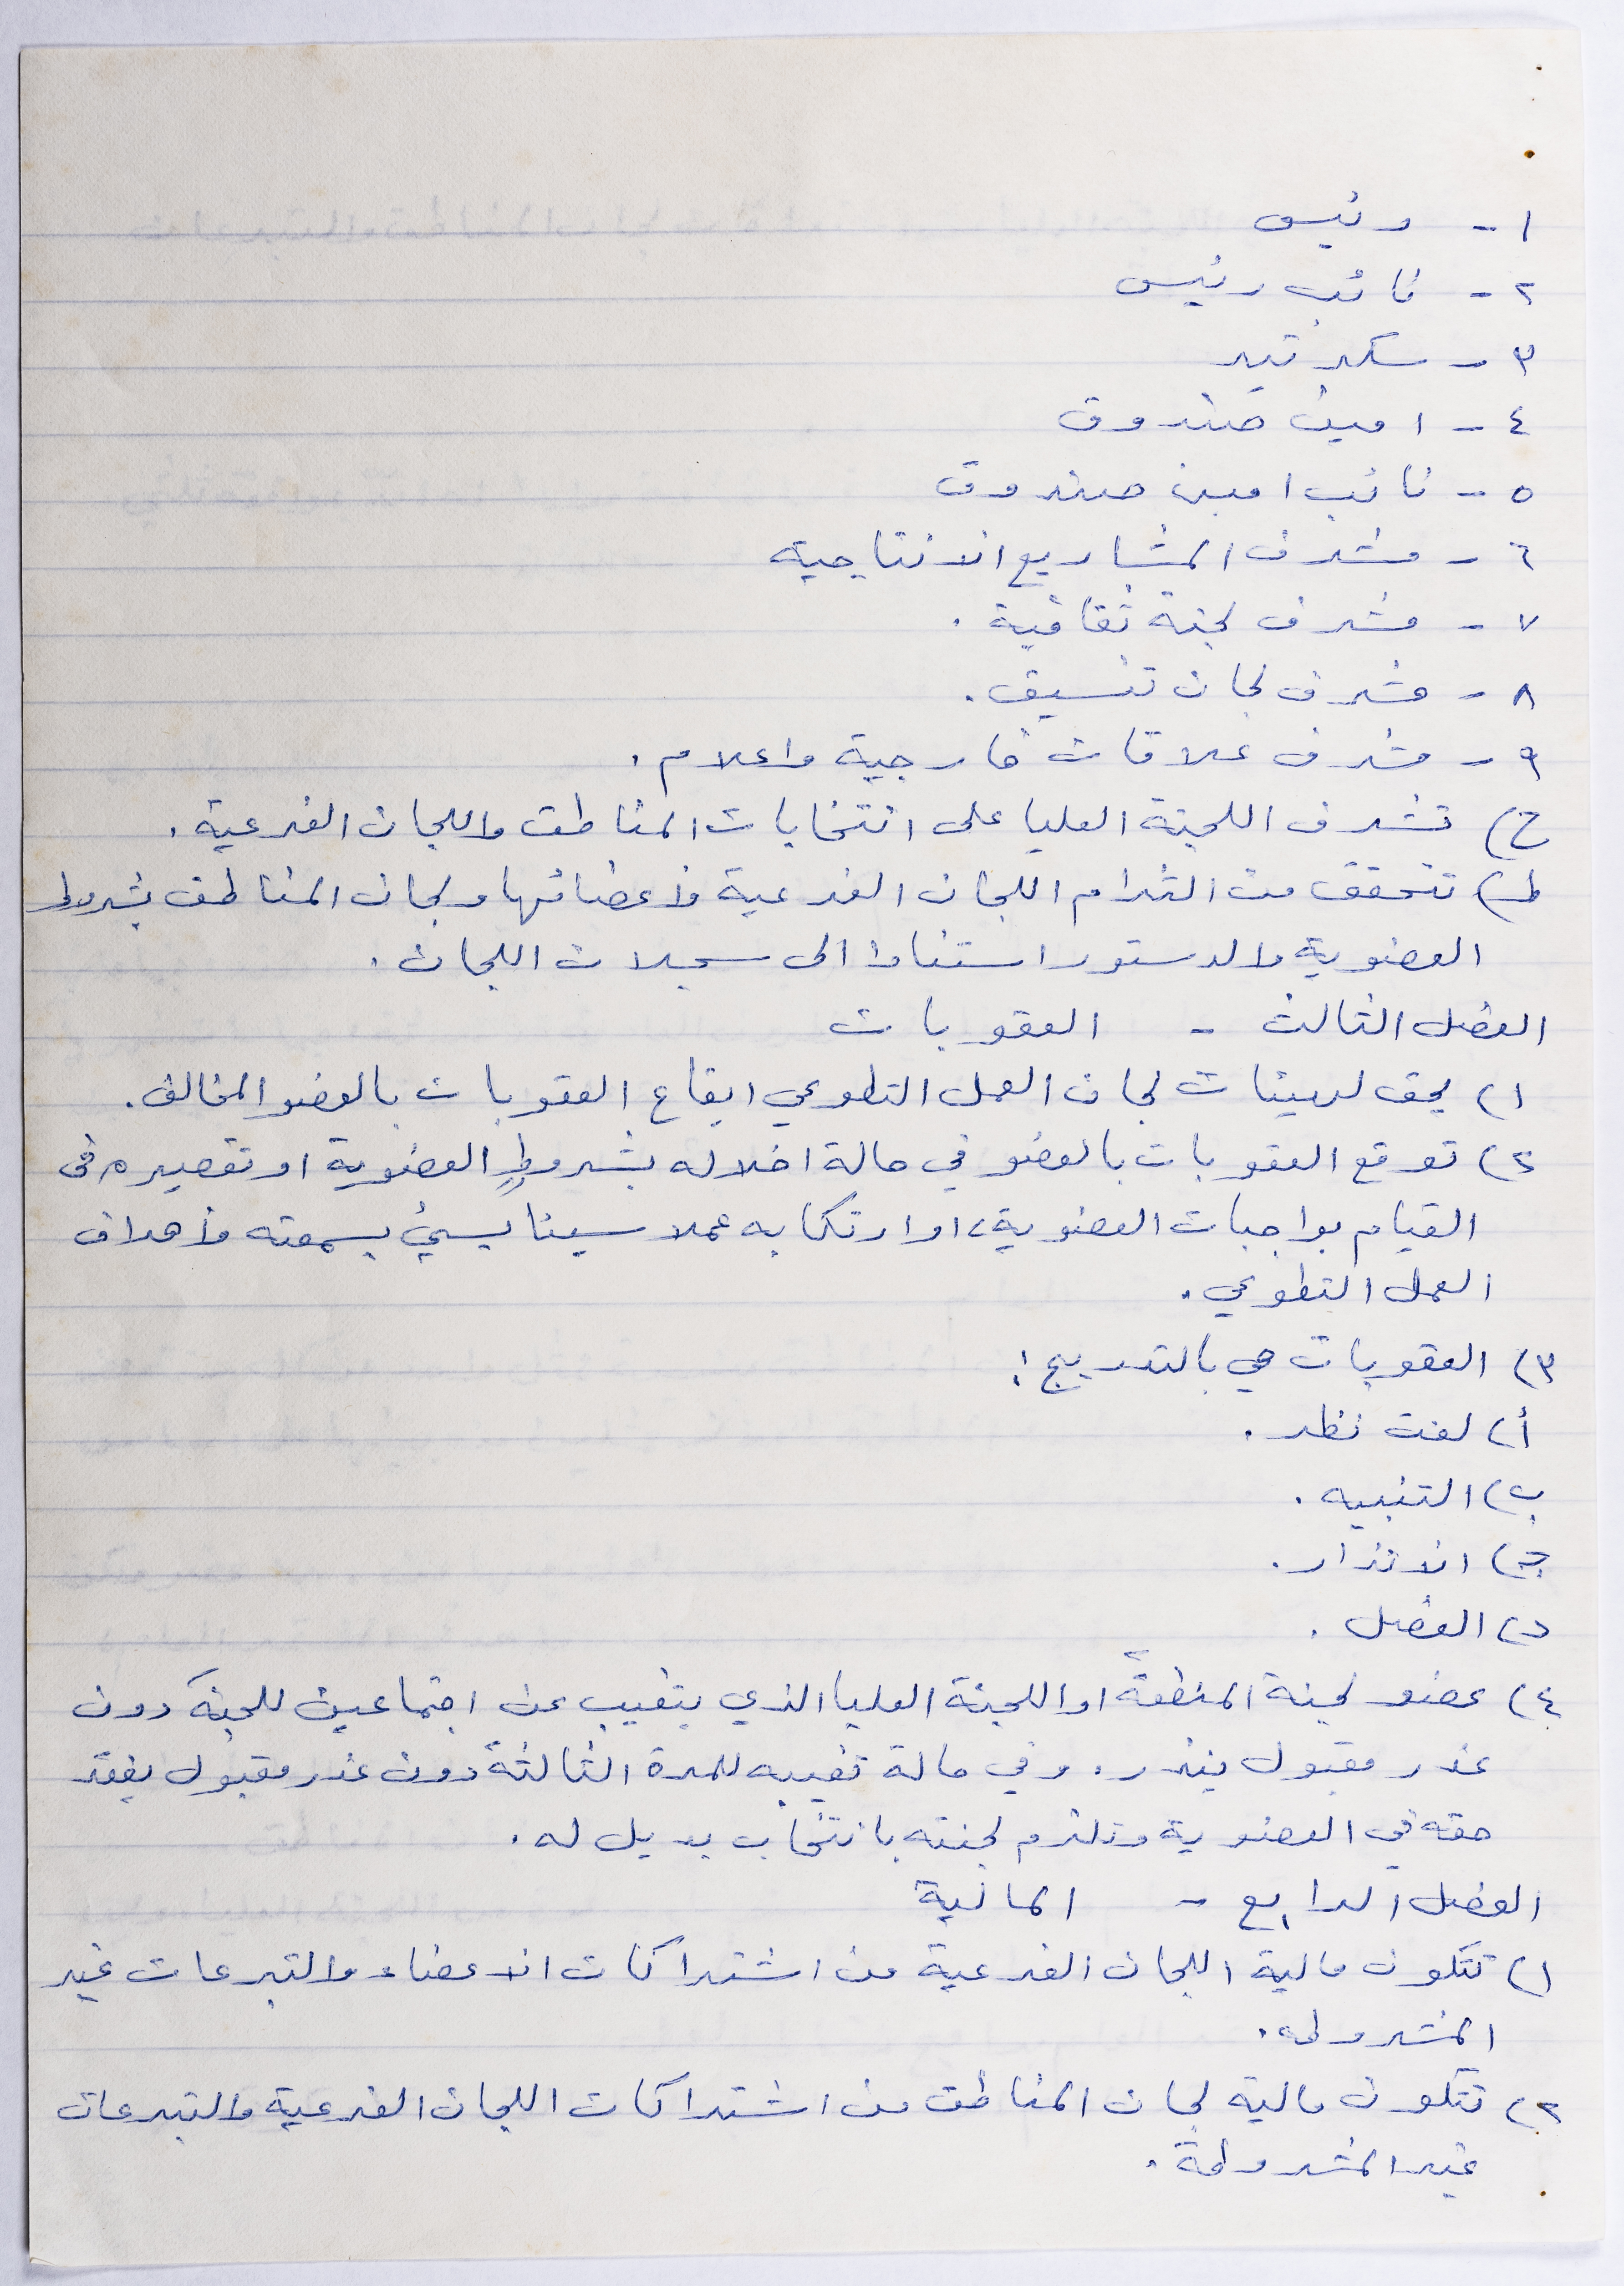 ١ - رئيس
٢ - نائب رئيس
٣ - سكرتير
٤ - امين صندوق
٥ - نائب امين صندوق
٦ - مشرف المشاريع الانتاجية
٧ - مشرف لجنة ثقافية .
٨ - مشرف لجان تنسيق .
٩ - مشرف علاقات خارجية واعلام .
ح) تشرف اللجنة العليا على انتخابات المناطق واللجان الفرعية .
ط) تتحقق من التزام اللجان الفرعية وأعضائها ولجان المناطق بشروط
العضوية والدستور استنادا الى سجلات اللجان .
الفصل الثالث - العقوبات
١) يحق لهيئات لجان العمل التطوعي ايقاع العقوبات بالعضو المخالف .
٢) توقع العقوبات بالعضو في حالة اخلاله بشروط العضوية او تقصيره في
القيام بواجبات العضوية، او ارتكابه عملا سيئا يسيئ بسمعته وأهداف
العمل التطوعي .
٣) العقوبات هي بالتدريج :
أ) لفت نظر .
ب) التنبيه .
ج) الانذار .
د) الفصل .
٤) عضو لجنة المنطقة او اللجنة العليا الذي يتغيب عن اجتماعين للجنة دون
عذر مقبول ينذر . وفي حالة تغيبه للمرة الثالثة دون عذر مقبول يفقد
حقه في العضوية وتلتزم لجنته بانتخاب بديل له .
الفصل الرابع - المالية
١) تتكون مالية اللجان الفرعية من اشتراكات الاعضاء والتبرعات غير
المشروطه .
٢) تتكون مالية لجان المناطق من اشتراكات اللجان الفرعية والتبرعات
غير المشروطة .